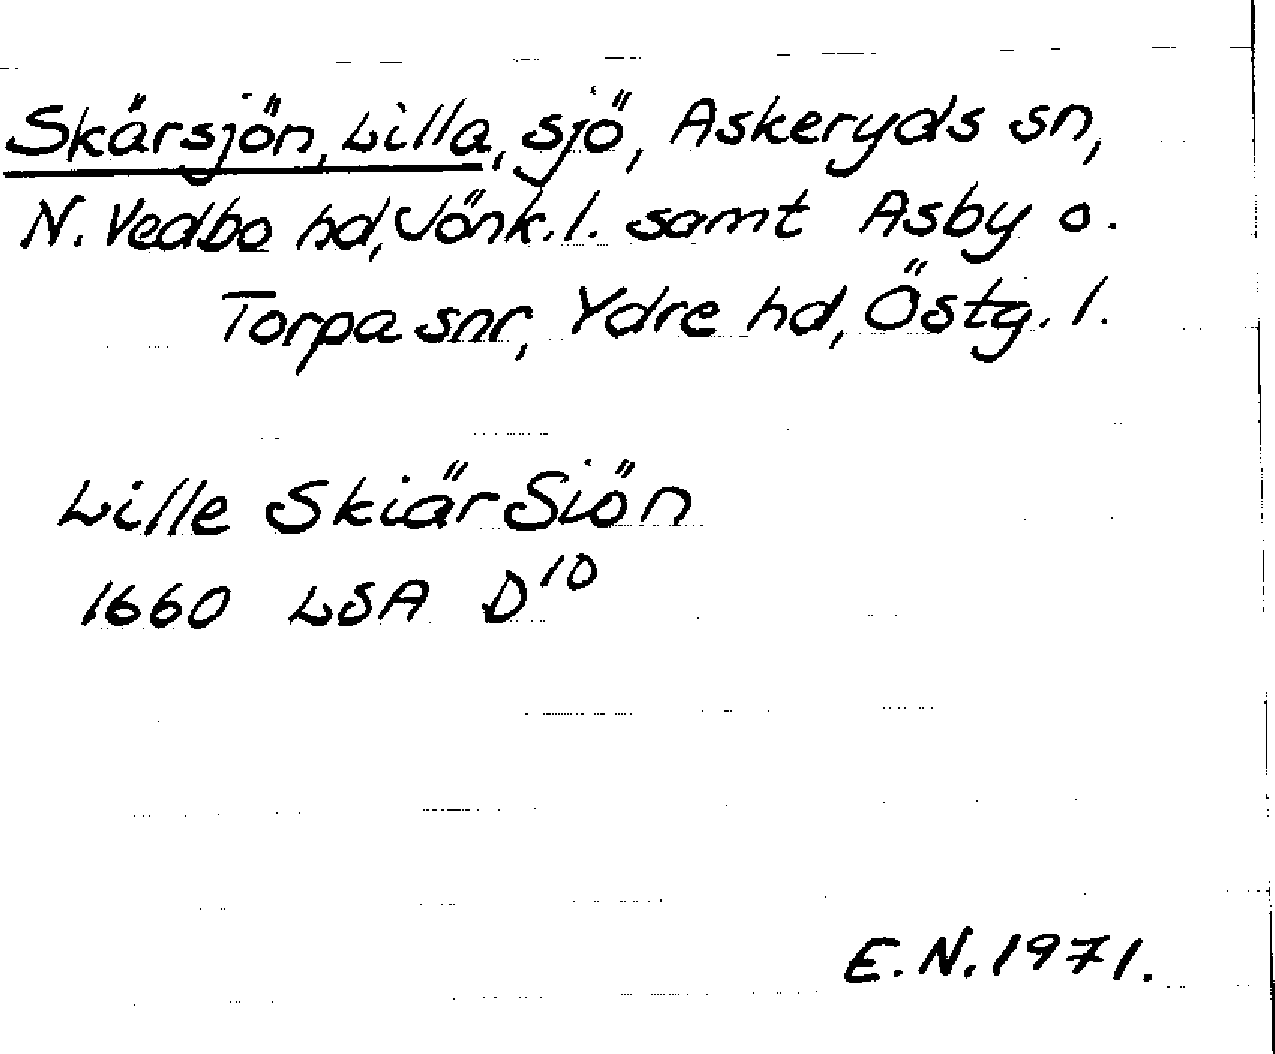 Skärsjön, Lilla, sjö, Askeryds sn,
N. Vedbo hd, Jönk. l. samt Asby o.
Torpa snr, Ydre hd, Östg. l.
Lille Skiär Siön
1660 LSA D10
E.N. 1971.